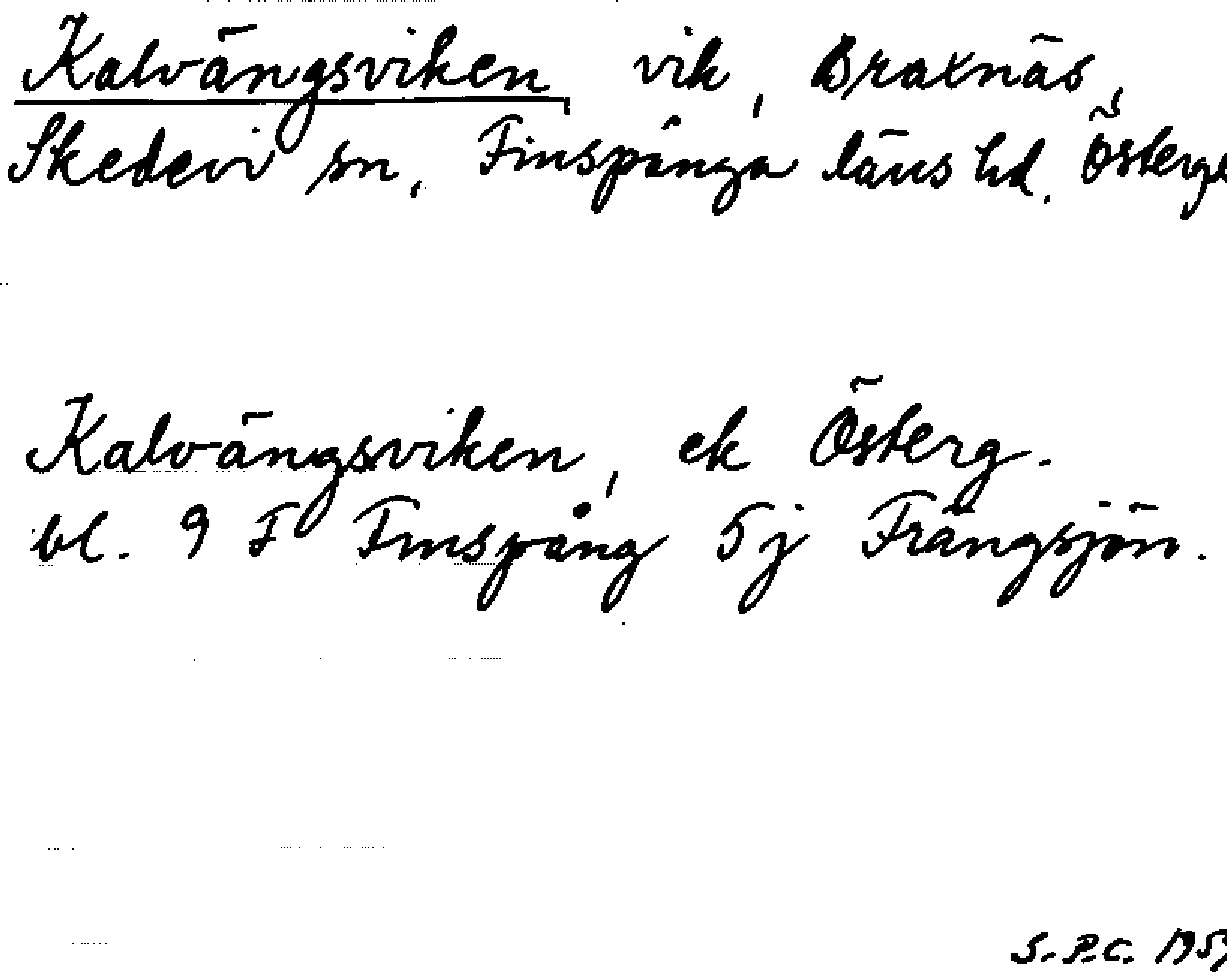 Kalvängsviken, vik, Braxnäs,
Skedevi sn, Finspånga läns hd. Österg
Kalvängsviken, ek Österg.
bl. 9 F Finspång 5j Frängsjön.
S.P.C.